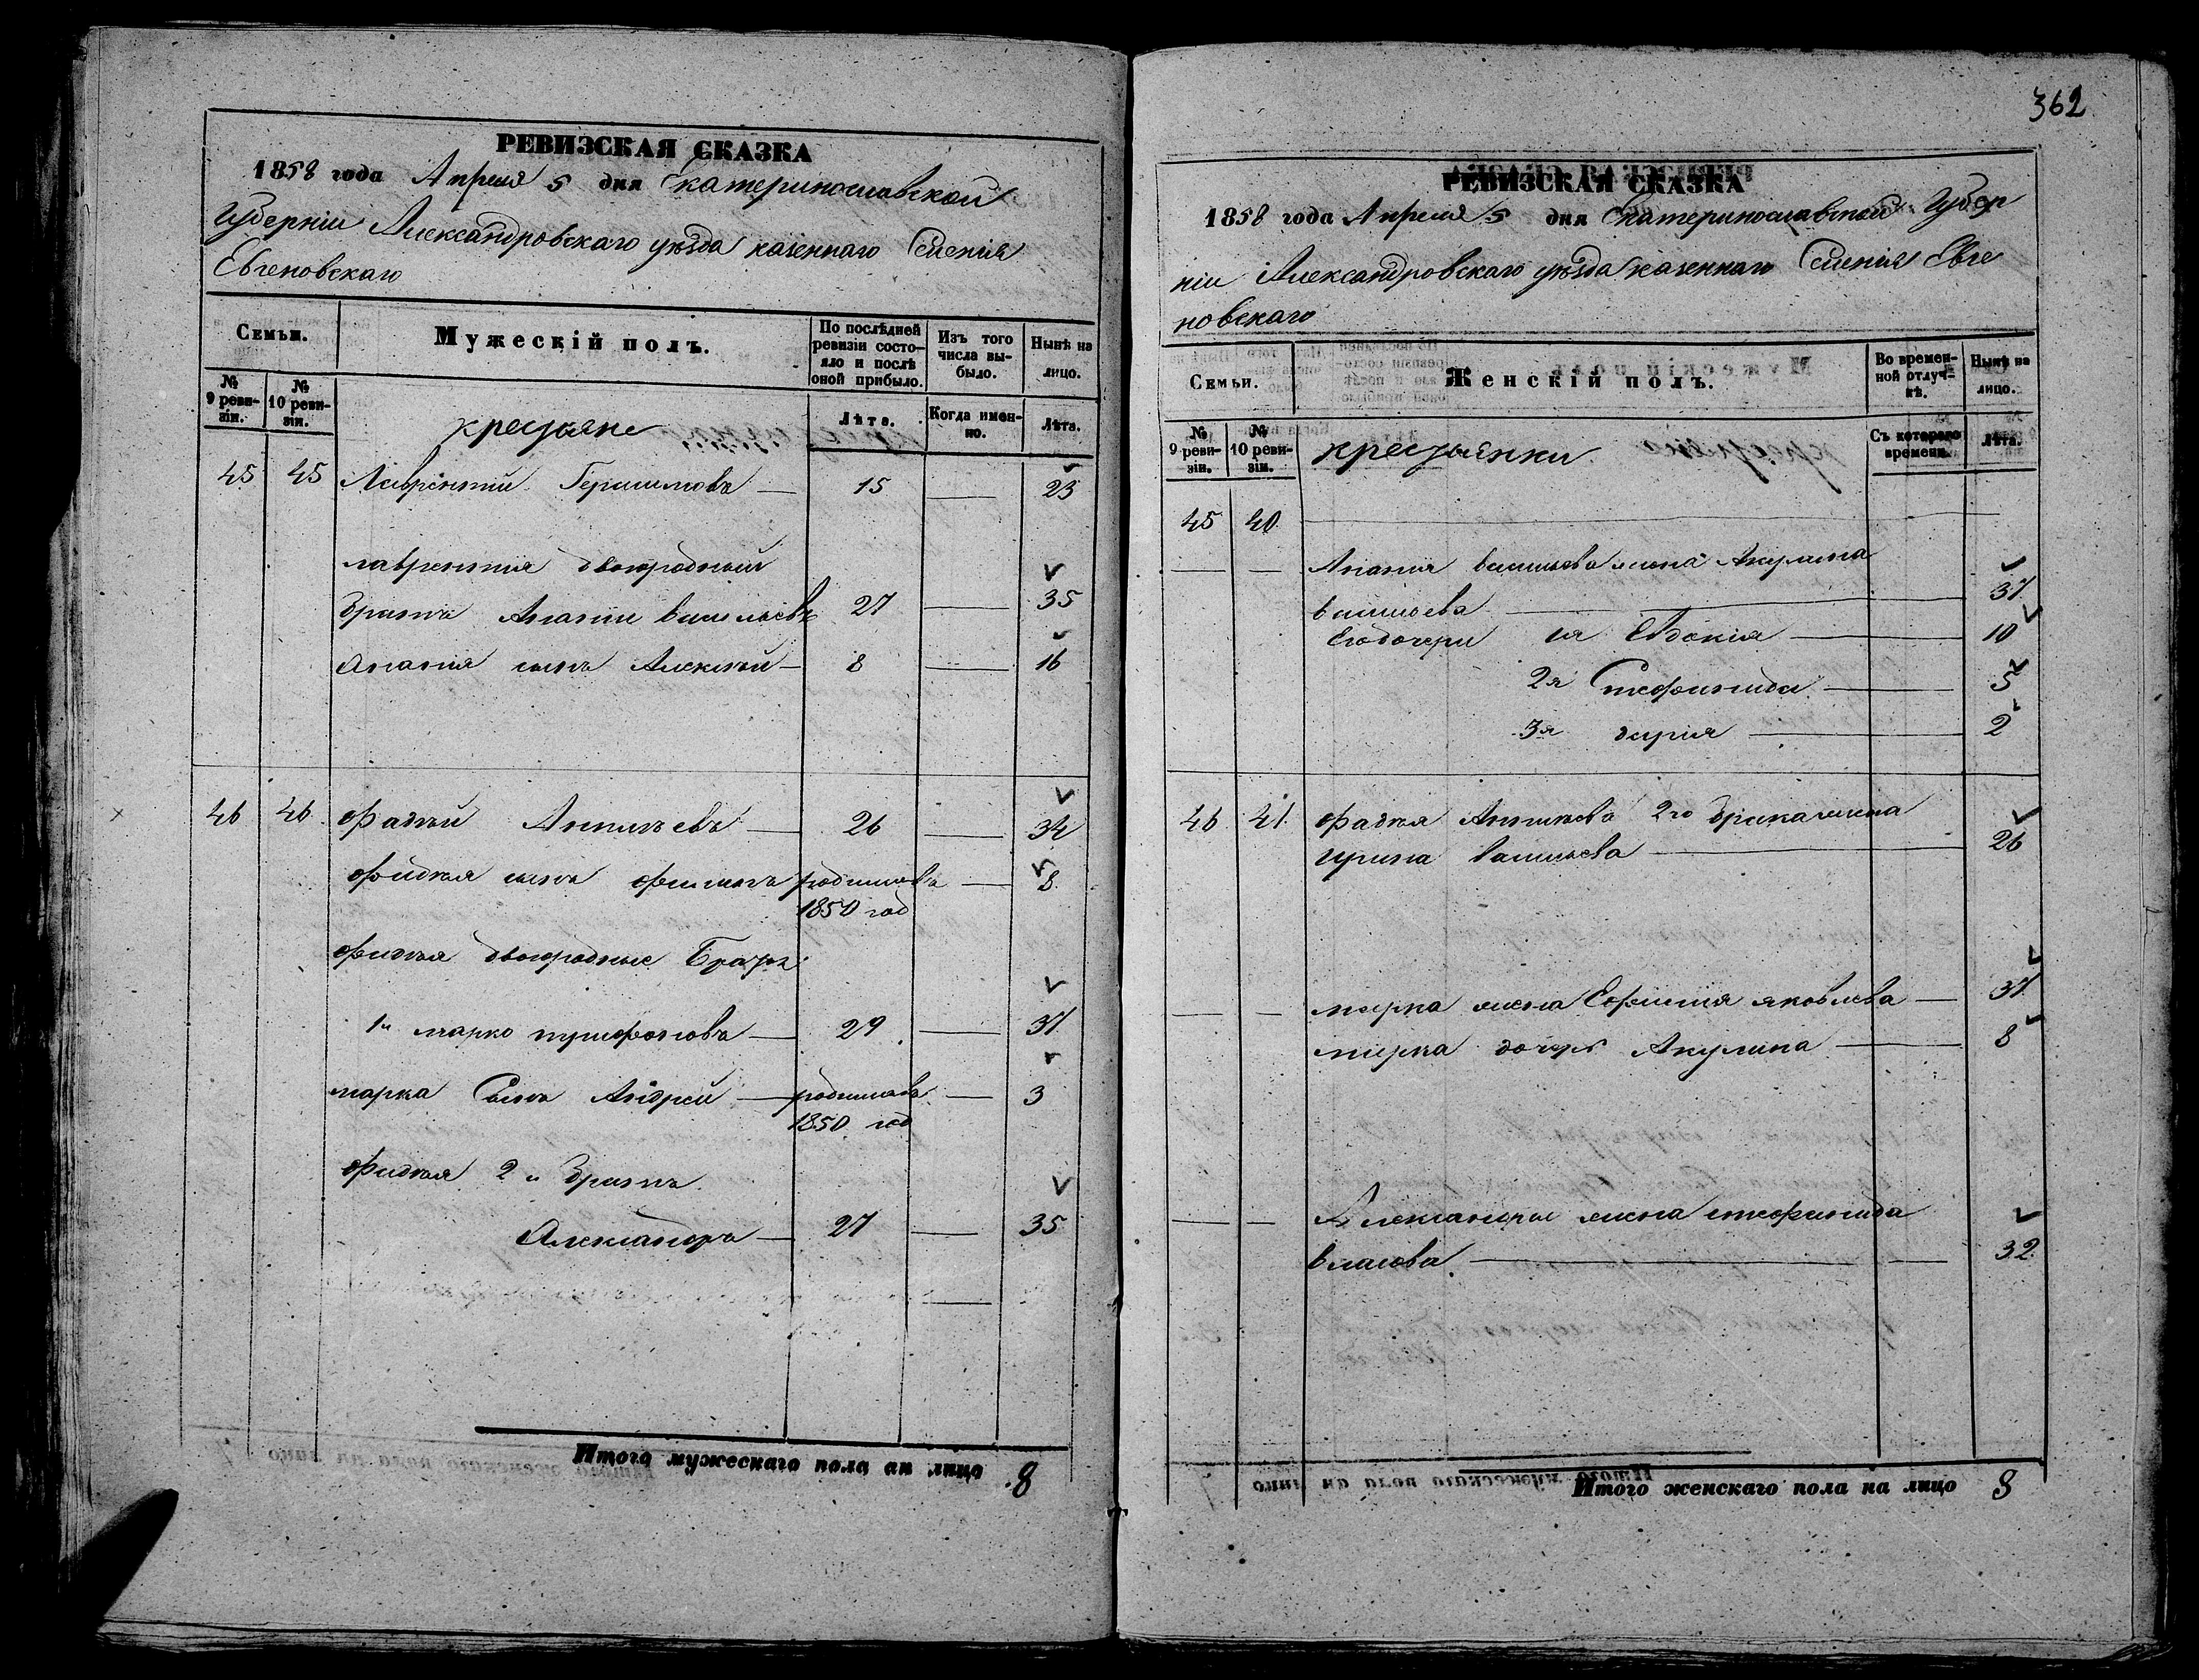 РЕВИЗСКАЯ СКАЗКА
1858 года Апреля 5 дня Екатеринославской
Губерніи Александровскаго уѣзда казеннаго Селенія
Евгеновскаго
Семьи.
Мужескій полъ.
По послѣдней ревизіи состояло и послѣ оной прибыло.
Изъ того числа выбыло.
Нынѣ на лицо.
№ 9 ревизіи.
№ 10 ревизіи.
крестьяне
Лѣта.
Когда именно.
Лѣта.
45 45 Лаврентий Герасимовъ — 15 — 23
лаврентия двоюродный
братъ Анании васильевъ 27 — 35
Анания сынъ Алексѣй — 8 — 16
46 46 Фадѣй Антипьевъ — 26 — 34
Фадѣя сынъ Филипъ родился — 8
1850 год
Фадѣя двоюродные Братья
1й марко трифоновъ — 29 — 37
марка Сынъ Андрей — родился — 3
1850 год
Фадѣя 2й братъ
Александръ — 27 — 35
Итого мужескаго пола ан лицо 8
362
РЕВИЗСКАЯ СКАЗКА
1858 года Апреля 5 дня Екатеринославской Губер
ніи Александровскаго уѣзда казеннаго Селенія Евге
новскаго
Семьи.
Женскій полъ.
Во временной отлучкѣ.
Нынѣ на лицо.
№ 9 ревизіи.
№ 10 ревизіи.
крестьянки
Съ котораго времени.
Лѣта.
45 40 —
— — Анания васильева жена Акулина
васильева — 37
Его дочери 1я Евдокія — 10
2я Стефанида — 5
3я дарія — 2
46 41 Фадѣя Антипьева 2го брака жена
ирина васильева — 26
— — марка жена Ефимия яковлева — 37
марка дочерь Акулина — 8
— — Александра жена стефанида
власова — 32
Итого женскаго пола на лицо 8